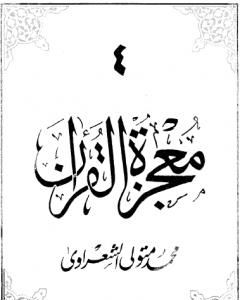 ٤
معجزة القرآن
محمد متولى الشعراوى